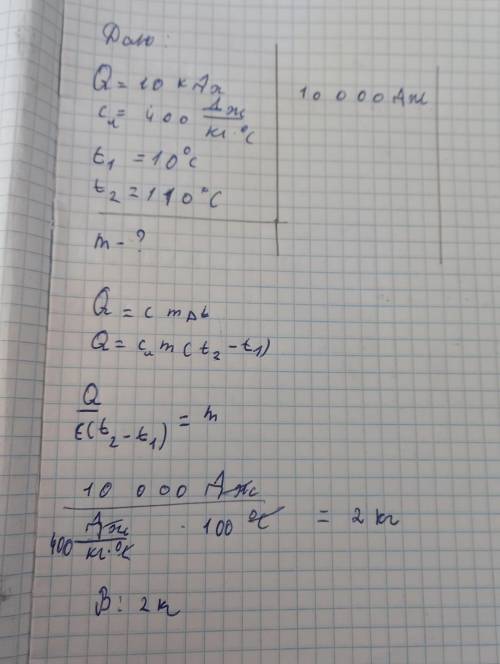 Дано:
Q = 10 кДж
10 000 Дж
cл = 400 Дж/кг·°C
t₁ = 10°C
t₂ = 110°C
m - ?
Q = c m Δt
Q = cл m (t₂ - t₁)
Q/c(t₂ - t₁) = m
10 000 Дж / 400 Дж/кг·°C · 100 °C = 2 кг
В: 2 кг